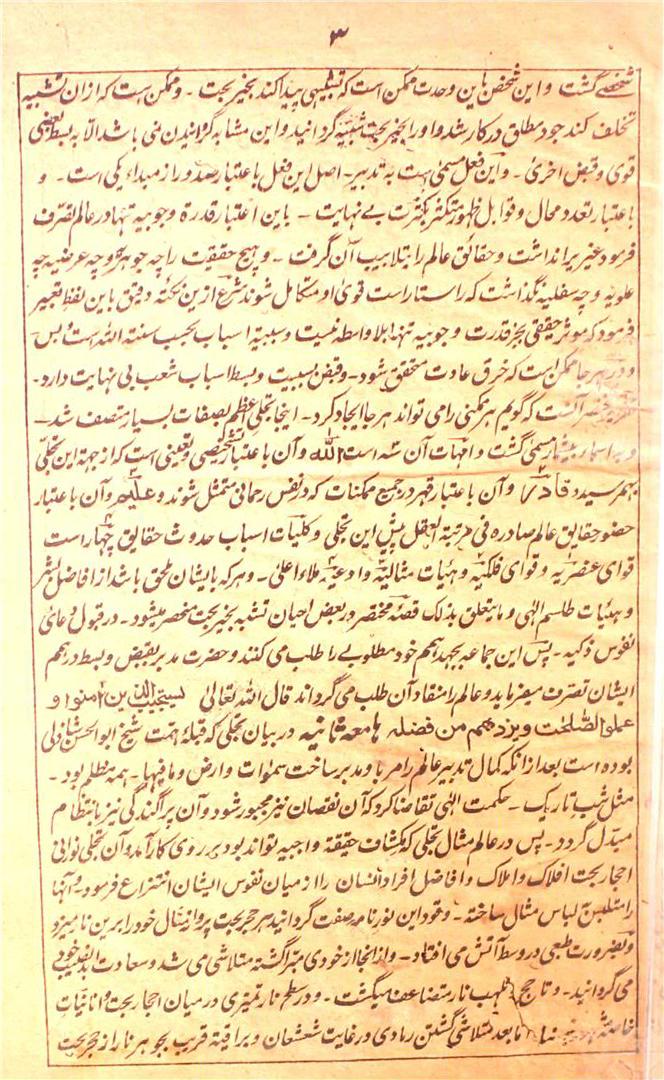 ۳
شخصے گشت و این شخص باین وحدت ممکن است که تشبیهی پیدا کند بخیر بحت۔ و ممکن است که ازان تشبیه
تخلف کند جود مطلق در کار شد و او را بخیر بحت شبیه گردانید و این مشابه گردانیدن نمی باشد الا به بسط بعضی
قوی و قبض اخری۔ و این فعل مسمی است به تدبیر۔ اصل این فعل باعتبار صدور از مبداء یکی است۔ و
باعتبار تعدد محال و قوابل ظهور متکثر بکثرت بے نهایت۔ باین اعتبار قدرة وجوبیه تنها در عالم تصرف
فرمود غیر برا نداشت و حقائق عالم را بتلابیب آن گرفت۔ و هیچ حقیقت را چه جوهریه و چه عرضیه چه
علویه و چه سفلیه نگذاشت که راستا راست قوی او متکامل شوند شرع ازین نکتهٔ دقیق باین لفظ تعبیر
فرمود که موثر حقیقی بجز قدرت وجوبیه تنها بلا واسطه نیست و سببیة اسباب بحسب سنة الله است و بس
و در هر جا ممکن است که خرق عادت متحقق شود۔ و قبض سببیت و بسط اسباب شعب بی نهایت دارد۔
آنست که گویم هر ممکنی را می تواند هر جا ایجاد کرد۔ اینجا تجلی اعظم بصفات بسیار متصف شد۔
و به اسماء بیشمار مسمی گشت و امهات آن سه است الله و آن باعتبار تشخصی و تعینی است که از جهة این تجلی
بهم رسید و قادر و آن باعتبار قهر در جمیع ممکنات که در نفس رحمانی متمثل شوند و علیم و آن باعتبار
حضور حقایق عالم صادره فی مرتبة العقل پیش این تجلی و کلیات اسباب حدوث حقایق چهار است
قوای عنصریه و قوای فلکیه و هیئات مثالیه و ادعیهٔ ملاء اعلی۔ و هر که بایشان ملحق باشد از افاضل البشر
و بهیئات طلسم الهی و ما یتعلق بذلک قصهٔ مختصر در بعض احیان تشبه بخیر بحت منحصر میشود۔ در قبول دعای
نفوس ذکیه۔ پس این جماعه بجهد همم خود مطلوبے را طلب می کنند و حضرت مدبر بقبض و بسط در همم
ایشان تصرف میفرماید و عالم را منقاد آن طلب می گرداند قال الله تعالی یستجیب الذین آمنوا و
عملوا الصلحت و یزدهم من فضله هامعه ثانیه در بیان تجلی که قبلهٔ همت شیخ ابوالحسن شاذلی
بوده است بعد ازانکه کمال تدبیر عالم را مربا و مدبر ساخت سموات و ارض و ما فیها۔ همه مظلم بود۔
مثل شب تاریک۔ حکمت الهی تقاضا کرد که آن نقصان نیز مجبور شود و آن پراگندگی نیز بانتظام
مبدل گردد۔ پس در عالم مثال تجلی که کشاف حقیقة واجبیه تواند بود بر روی کار آمد و آن تجلی نورانی
احجار بحت افلاک و املاک و افاضل افراد انسان را از میان نفوس ایشان انتزاع فرمود۔ و آنها
را متلبس لباس مثال ساخته۔ وقود این نور نار صفت گردانید هر حجر بحت پرواز مثال خود را برین نار میزد
و بضرورت طبعی در وسط آتش می افتاد۔ و از انجا از خودی مبرا گشته متلاشی می شد و سعادت نصیب خود
می گردانید۔ و تا حج لهب نار متضاعف میگشت۔ و در سطح نار تمیزی در میان احجار بحت و انانیات
خاصهٔ ما بعد متلاشی گشتن رمادی در غایت شعشعان و براقیة قریب بجوهر نار از حجر بحت